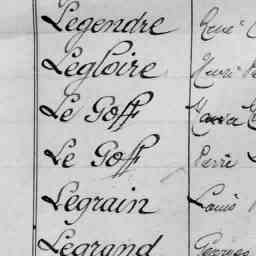 Legendre René
Legloire Henri
Le Goff
Le Goff
Legrain Louis
Legrand Georges